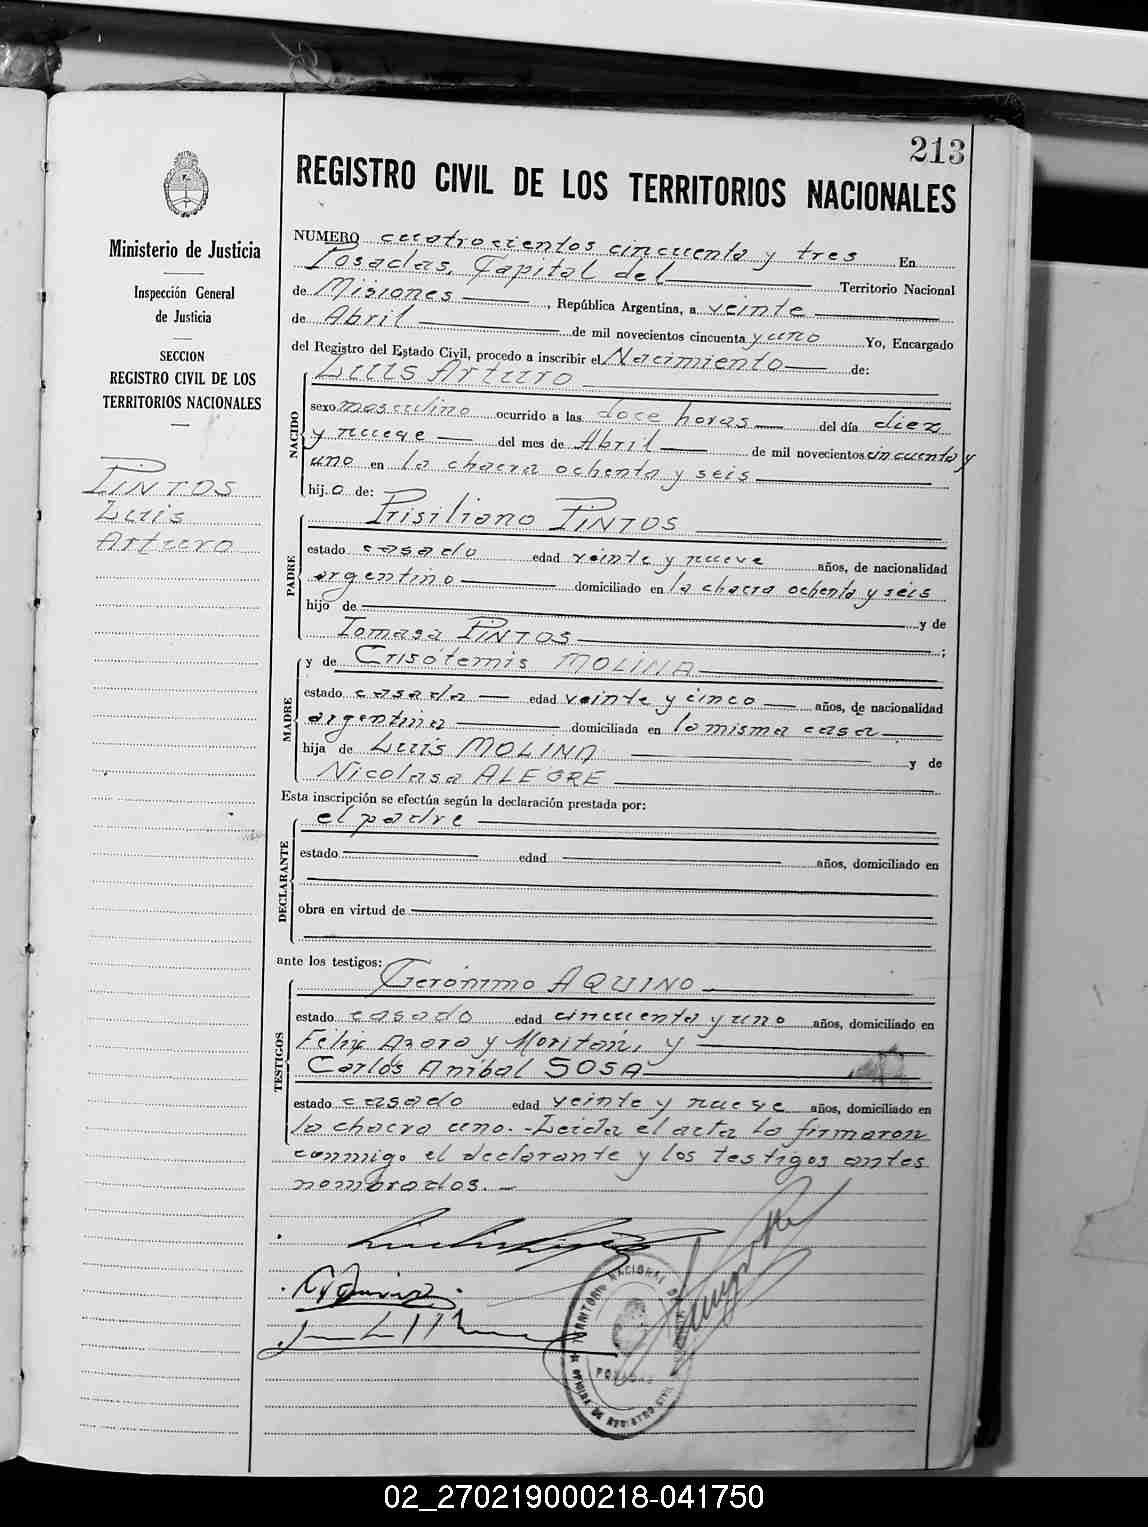 213
REGISTRO CIVIL DE LOS TERRITORIOS NACIONALES
Ministerio de Justicia
Inspección General
de Justicia
SECCION
REGISTRO CIVIL DE LOS
TERRITORIOS NACIONALES
PINTOS
Luis
Arturo
NUMERO cuatrocientos cincuenta y tres En
Posadas, Capital del Territorio Nacional
de Misiones, República Argentina, a veinte
de Abril de mil novecientos cincuenta y uno Yo, Encargado
del Registro del Estado Civil, procedo a inscribir el Nacimiento de:
NACIDO
Luis Arturo
sexo masculino ocurrido a las doce horas del día diez
y nueve del mes de Abril de mil novecientos cincuenta y
uno en la chacra ochenta y seis
hij.o de:
PADRE
Prisiliano PINTOS
estado casado edad veinte y nueve años, de nacionalidad
argentino domiciliado en la chacra ochenta y seis
hijo de y de
Tomasa PINTOS ;
MADRE
y de Crisótemis MOLINA
estado casada edad veinte y cinco años, de nacionalidad
argentina domiciliada en la misma casa
hija de Luis MOLINA y de
Nicolasa ALEGRE
Esta inscripción se efectúa según la declaración prestada por:
DECLARANTE
el padre
estado edad años, domiciliado en
obra en virtud de
ante los testigos:
TESTIGOS
Gerónimo AQUINO
estado casado edad cincuenta y uno años, domiciliado en
Felix Azara y Moritán, y
Carlos Anibal SOSA
estado casado edad veinte y nueve años, domiciliado en
la chacra uno.-Leida el acta la firmaron
conmigo el declarante y los testigos antes
nombrados.-
TERRITORIO NACIONAL DE
POSADAS
OFICINA DE REGISTRO CIVIL
02_270219000218-041750